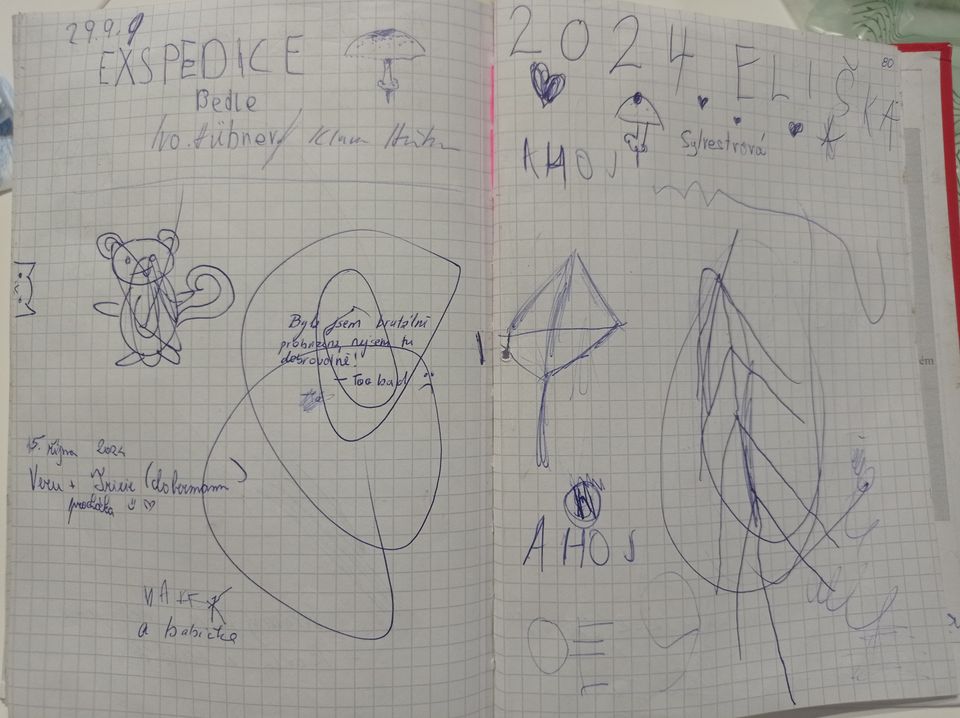 29.9.
EXSPEDICE
Bedle
Ivo Hübner
Byla jsem brutálně
probuzena, nejsem tu
dobrovolně!
– Too bad :(
15. října 2024
Veru + (dobermann)
procházka
a babička
2024. ELIŠKA
80
AHOJ
Sylvestrová
AHOJ